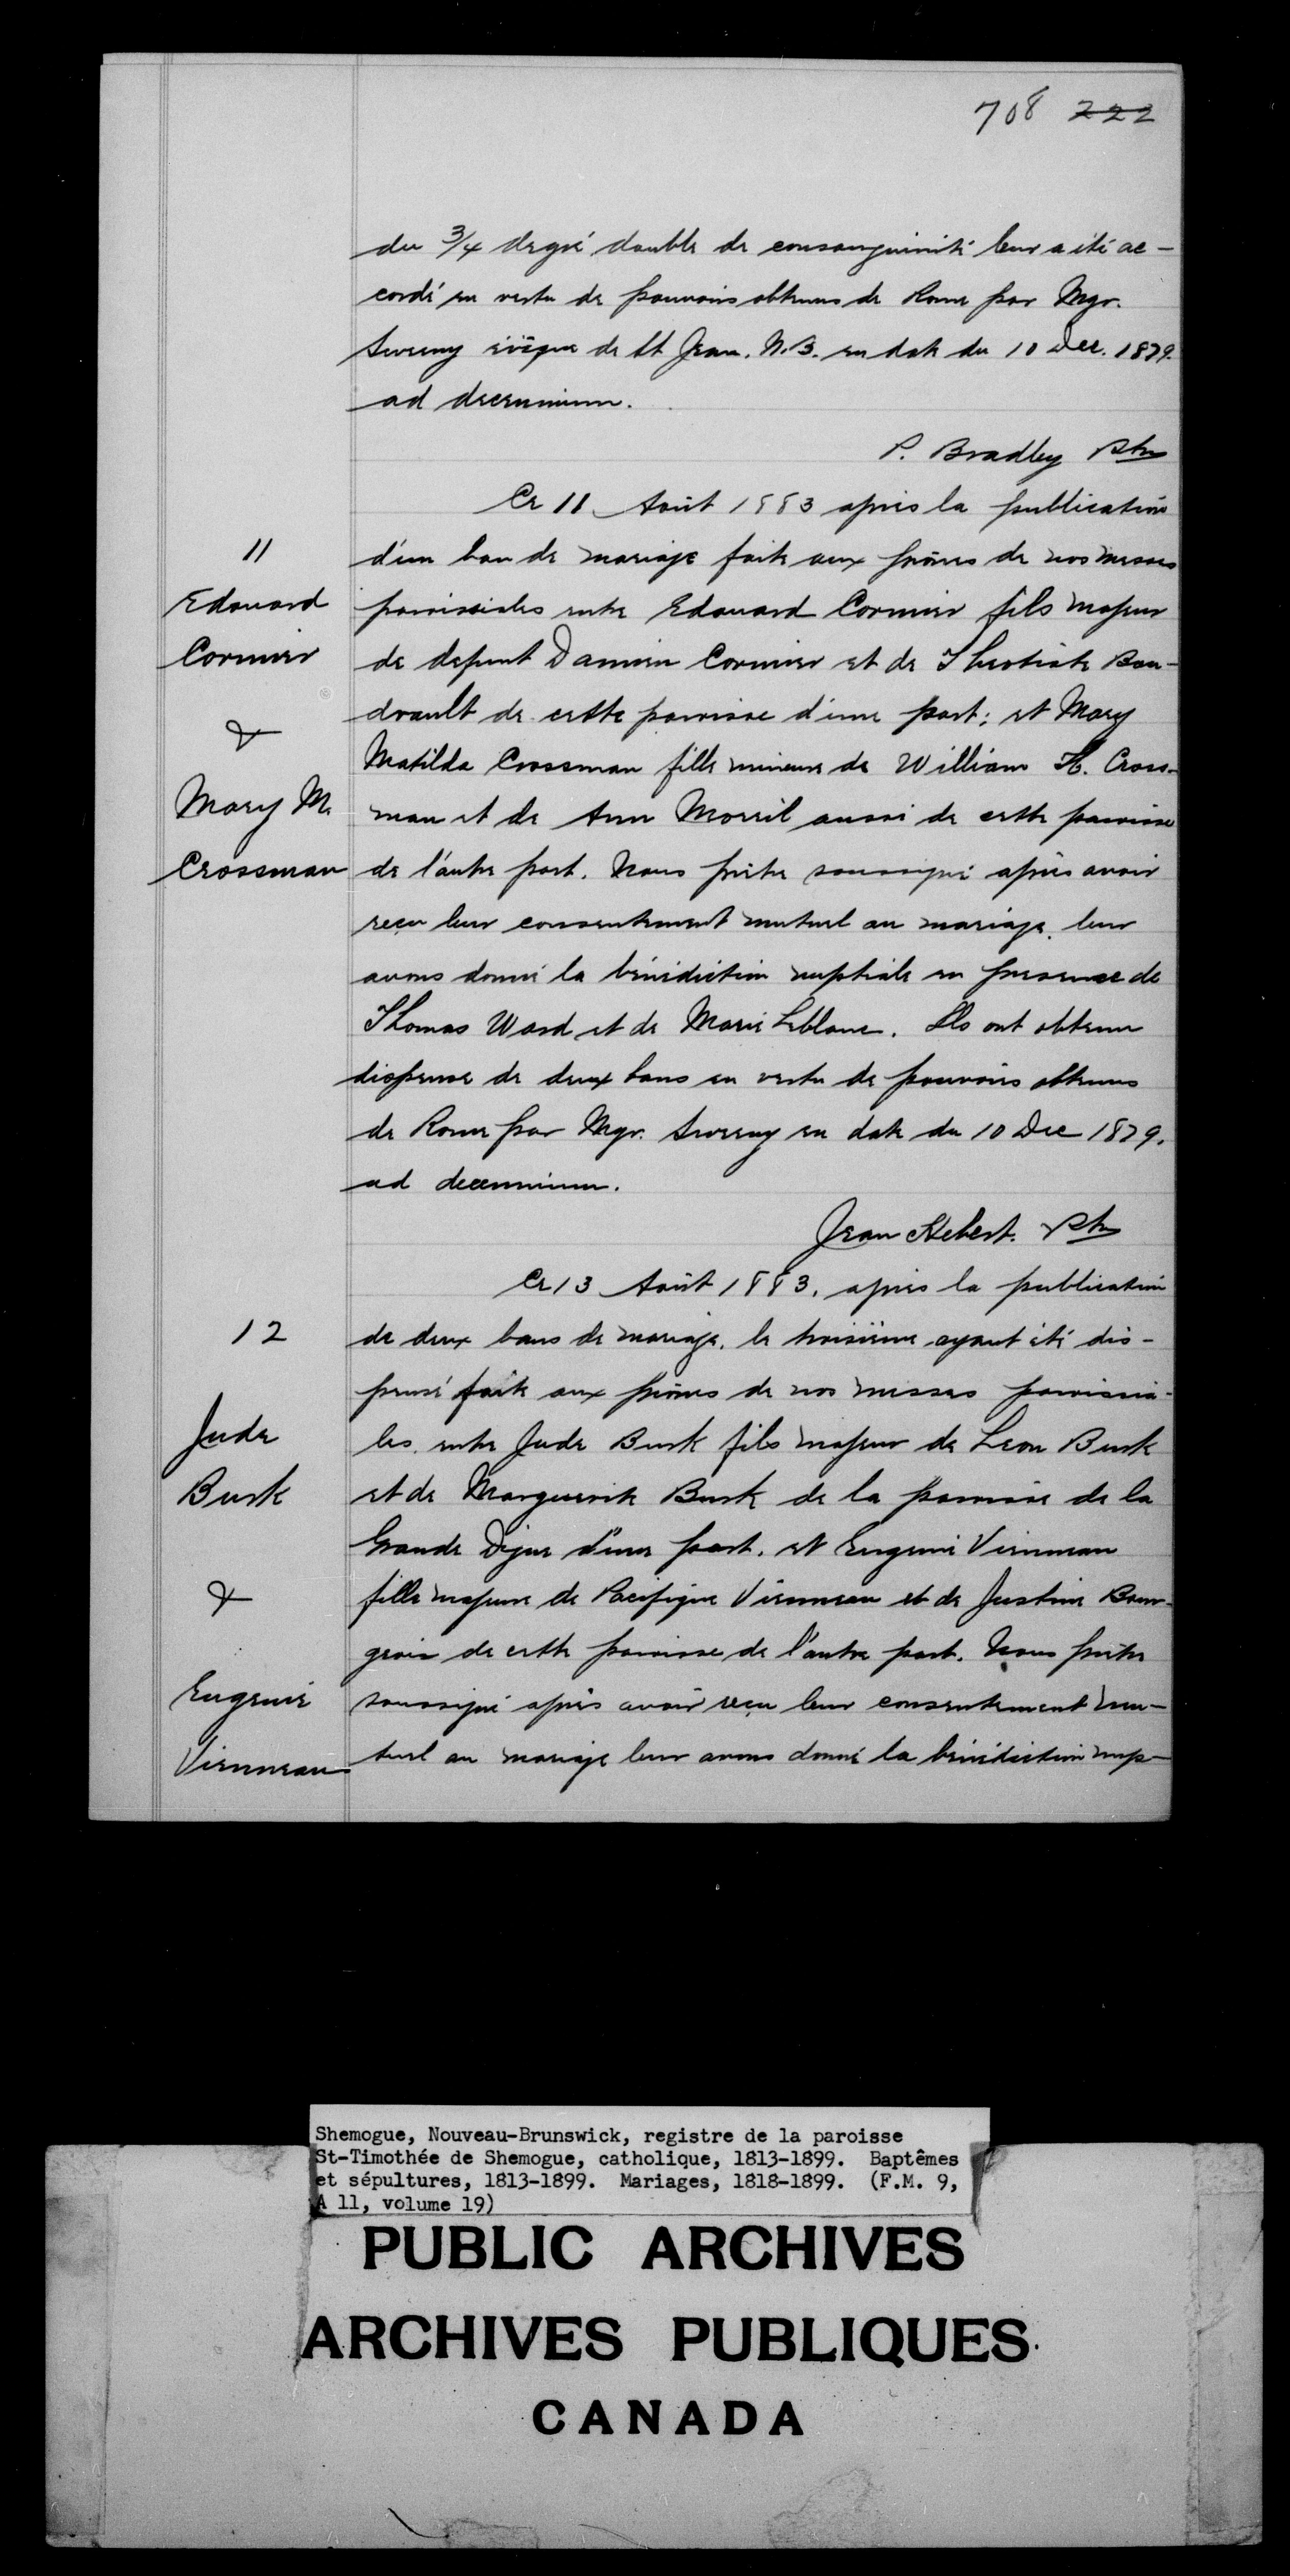 708 222
du 3/4 degré double de consanguinité leur a été ac-
cordé en vertu de pouvoirs obtenus de Rome par Mgr.
Sweeny évêque de St Jean. N.B. en date du 10 Dec. 1879.
ad decennium.
P. Bradley Ptre
Ce 11 Août 1883 après la publication
11
d'un ban de mariage faite aux prônes de nos messes
Edouard
paroissiales entre Edouard Cormier fils majeur
Cormier
de defunt Damien Cormier et de Theotiste Bou-
dreault de cette paroisse d'une part; et Mary
&
Matilda Crossman fille mineure de William H. Cross-
Mary M.
man et de Ann Morril aussi de cette paroisse
Crossman
de l'autre part. Nous prêtre soussigné après avoir
reçu leur consentement mutuel au mariage, leur
avons donné la bénédiction nuptiale en presence de
Thomas Ward et de Marie Leblanc. Ils ont obtenu
dispense de deux bans en vertu de pouvoirs obtenus
de Rome par Mgr. Sweeny en date du 10 Dec 1879.
ad decennium.
Jean Hebert. Ptre
Ce 13 Août 1883, après la publication
12
de deux bans de mariage, le troisième ayant été dis-
pensé faite aux prônes de nos messes paroissia-
Jude
les entre Jude Burk fils majeur de Leon Burk
Burk
et de Marguerite Burk de la paroisse de la
Grande Digue d'une part. et Eugenie Vienneau
&
fille majeure de Pacifique Vienneau et de Justine Bour-
geois de cette paroisse de l'autre part. Nous prêtre
Eugenie
soussigné après avoir reçu leur consentement mu-
Vienneau
tuel au mariage leur avons donné la bénédiction nup-
Shemogue, Nouveau-Brunswick, registre de la paroisse
St-Timothée de Shemogue, catholique, 1813-1899. Baptêmes
et sépultures, 1813-1899. Mariages, 1818-1899. (F.M. 9,
A 11, volume 19)
PUBLIC ARCHIVES
ARCHIVES PUBLIQUES
CANADA